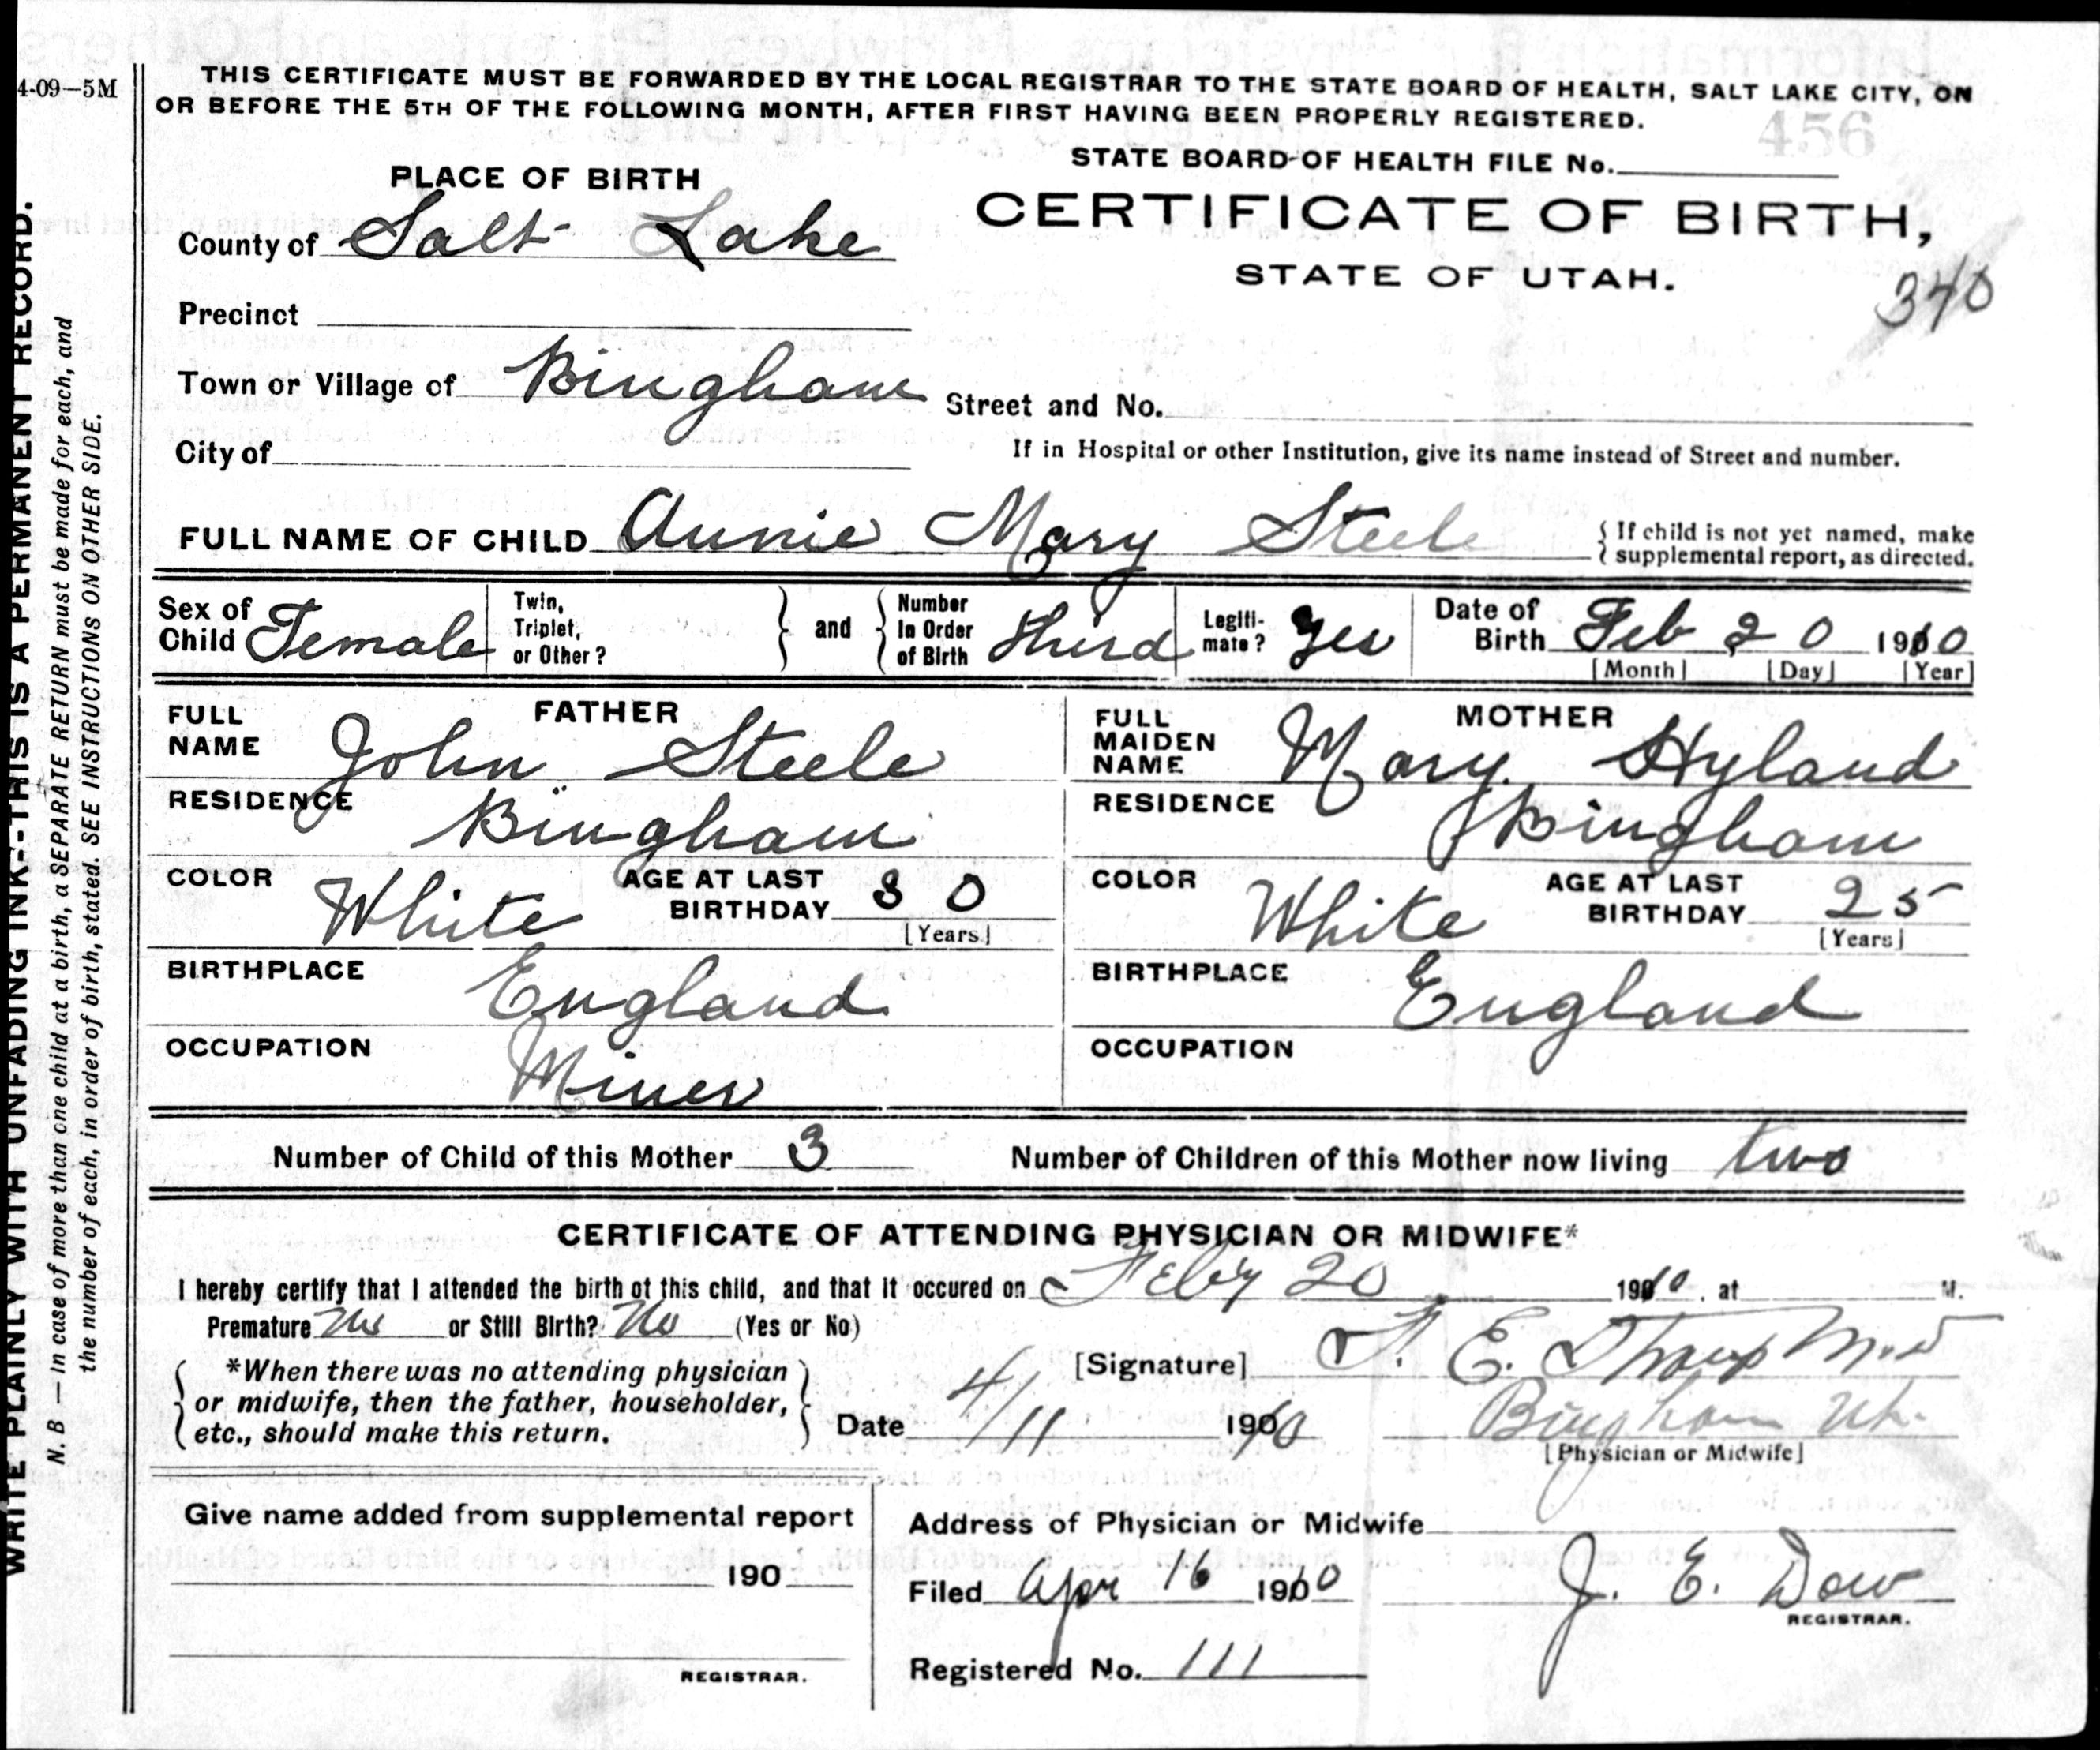 4-09—5M
THIS CERTIFICATE MUST BE FORWARDED BY THE LOCAL REGISTRAR TO THE STATE BOARD OF HEALTH, SALT LAKE CITY, ON
OR BEFORE THE 5TH OF THE FOLLOWING MONTH, AFTER FIRST HAVING BEEN PROPERLY REGISTERED.
456
STATE BOARD OF HEALTH FILE No.
PLACE OF BIRTH
CERTIFICATE OF BIRTH,
STATE OF UTAH.
340
County of Salt Lake
Precinct
Town or Village of Bingham
Street and No.
City of
If in Hospital or other Institution, give its name instead of Street and number.
FULL NAME OF CHILD Annie Mary Steele
{ If child is not yet named, make
{ supplemental report, as directed.
Sex of Child Female
Twin, Triplet, or Other? } and { Number In Order of Birth Third
Legiti-mate? Yes
Date of Birth Feb 20 1910
[Month] [Day] [Year]
FATHER
FULL NAME John Steele
RESIDENCE Bingham
COLOR White
AGE AT LAST BIRTHDAY 30
[Years]
BIRTHPLACE England
OCCUPATION Miner
MOTHER
FULL MAIDEN NAME Mary Hyland
RESIDENCE Bingham
COLOR White
AGE AT LAST BIRTHDAY 25
[Years]
BIRTHPLACE England
OCCUPATION
Number of Child of this Mother 3
Number of Children of this Mother now living two
CERTIFICATE OF ATTENDING PHYSICIAN OR MIDWIFE*
I hereby certify that I attended the birth of this child, and that it occured on Feb'y 20 1910, at M.
Premature No or Still Birth? No (Yes or No)
*When there was no attending physician
or midwife, then the father, householder,
etc., should make this return.
[Signature] E. M.D
Date 4/11 1910
Bingham Ut.
[Physician or Midwife]
Give name added from supplemental report
190
REGISTRAR.
Address of Physician or Midwife
Filed Apr 16 1910
J. E. Dow
REGISTRAR.
Registered No. 111
WRITE PLAINLY WITH UNFADING INK--THIS IS A PERMANENT RECORD.
N. B — In case of more than one child at a birth, a SEPARATE RETURN must be made for each, and
the number of each, in order of birth, stated. SEE INSTRUCTIONS ON OTHER SIDE.